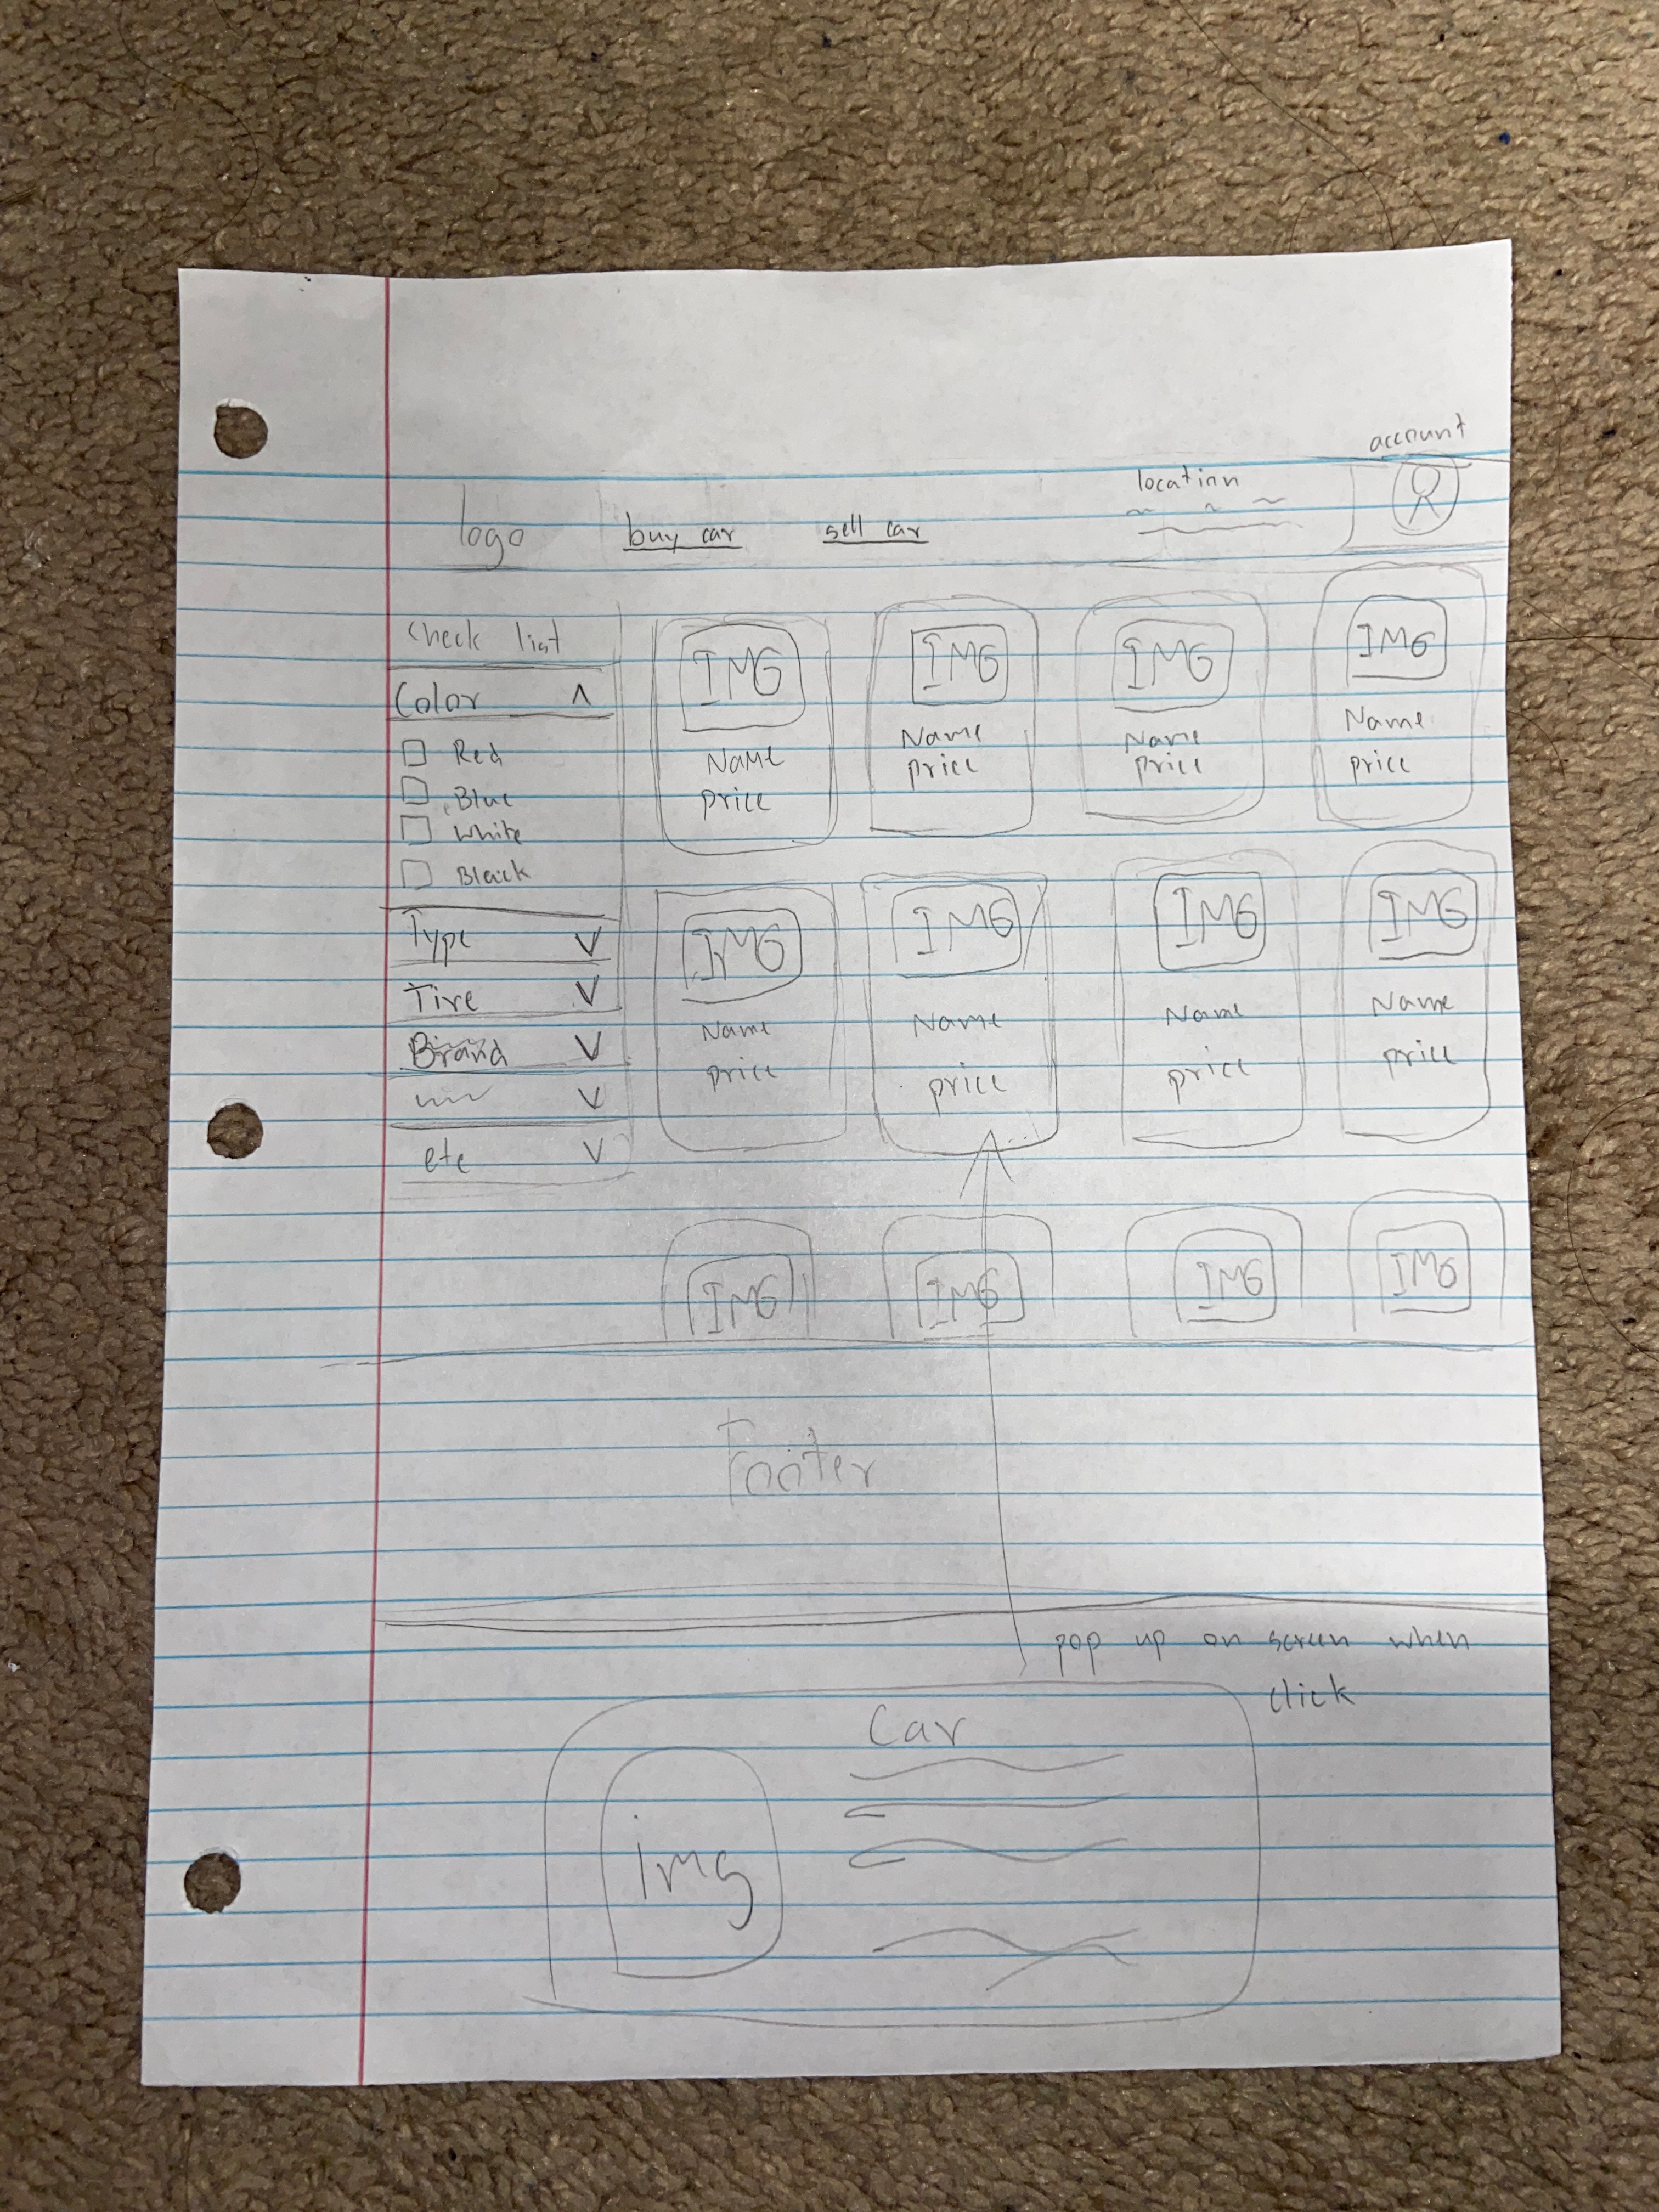 account
logo buy car sell car location
check list
Color ^
Red
Blue
White
Black
Type V
Tire V
Brand V
V
etc V
IMG IMG IMG IMG
Name Name Name Name
price price price price
IMG IMG IMG IMG
Name Name Name Name
price price price price
IMG IMG IMG IMG
Footer
pop up on screen when
click
Car
img